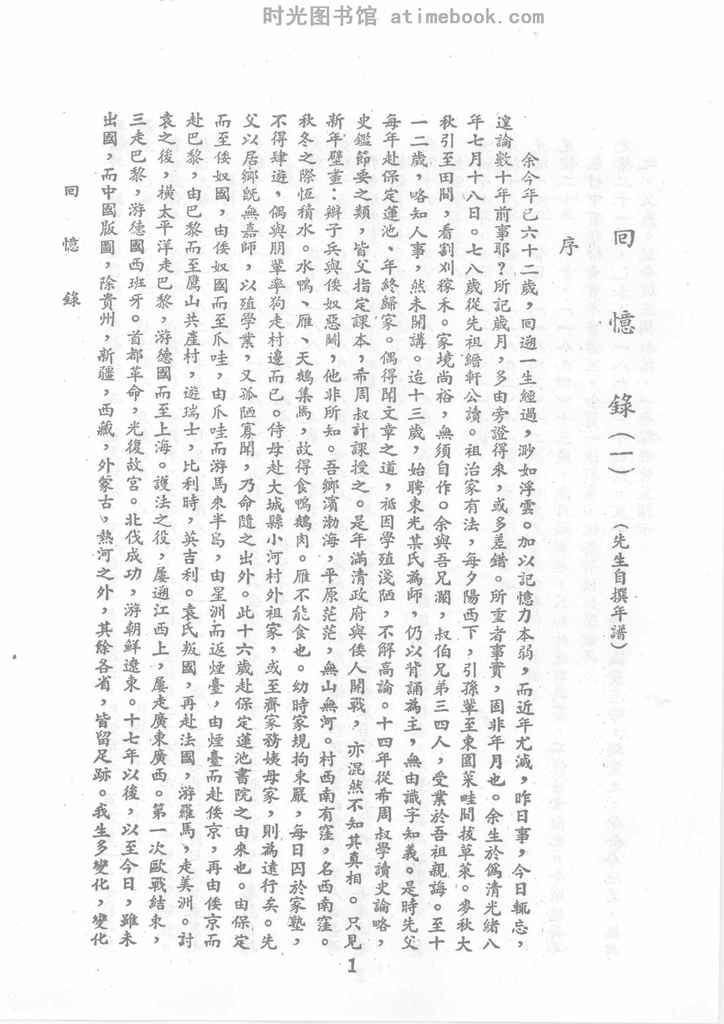 时光图书馆 atimebook.com
回憶錄(一)(先生自撰年譜)
序
余今年已六十二歲，回遡一生經過，渺如浮雲。加以記憶力本弱，而近年尤減，昨日事，今日輒忘，
遑論數十年前事耶？所記歲月，多由旁證得來，或多差錯。所重者事實，固非年月也。余生於僞清光緒八
年七月十八日。七八歲從先祖縉軒公讀。祖治家有法，每夕陽西下，引孫輩至東園菜畦間拔草萊。麥秋大
秋引至田間，看割刈稼禾。家境尚裕，無須自作。余與吾兄瀾，叔伯兄弟三四人，受業於吾祖親誨。至十
一二歲，略知人事，然未開講。迨十三歲，始聘東光某氏為師，仍以背誦為主，無由識字知義。是時先父
每年赴保定蓮池、年終歸家。偶得聞文章之道，祗因學殖淺陋，不解高論。十四年從希周叔學讀史論略，
史鑑節要之類，皆父指定課本，希周叔計課授之。是年滿清政府與倭人開戰，亦混然不知其真相。只見
新年壁畫：辮子兵與倭奴惡鬭，他非所知。吾鄉濱渤海，平原茫茫，無山無河。村西南有窪，名西南窪。
秋冬之際恆積水。水鴨、雁、天鵝集焉，故得食鴨鵝肉。雁不能食也。幼時家規拘束嚴，每日囚於家塾，
不得肆遊，偶與朋輩率狗走村邊而已。侍母赴大城縣小河村外祖家，或至齊家務姨母家，則為遠行矣。先
父以居鄉既無嘉師，以殖學業，又孤陋寡聞，乃命隨之出外。此十六歲赴保定蓮池書院之由來也。由保定
而至倭奴國，由倭奴國而至爪哇，由爪哇而游馬來半島，由星洲而返煙臺，由煙臺而赴倭京，再由倭京而
赴巴黎，由巴黎而至鷹山共產村，遊瑞士，比利時，英吉利。袁氏叛國，再赴法國，游羅馬，走美洲。討
袁之後，橫太平洋走巴黎，游德國而至上海。護法之役，屢遡江西上，屢走廣東廣西。第一次歐戰結束，
三走巴黎，游德國西班牙。首都革命，光復故宮。北伐成功，游朝鮮遼東。十七年以後，以至今日，雖未
出國，而中國版圖，除貴州，新疆，西藏，外蒙古，熱河之外，其餘各省，皆留足跡。我生多變化，變化
回憶錄
1